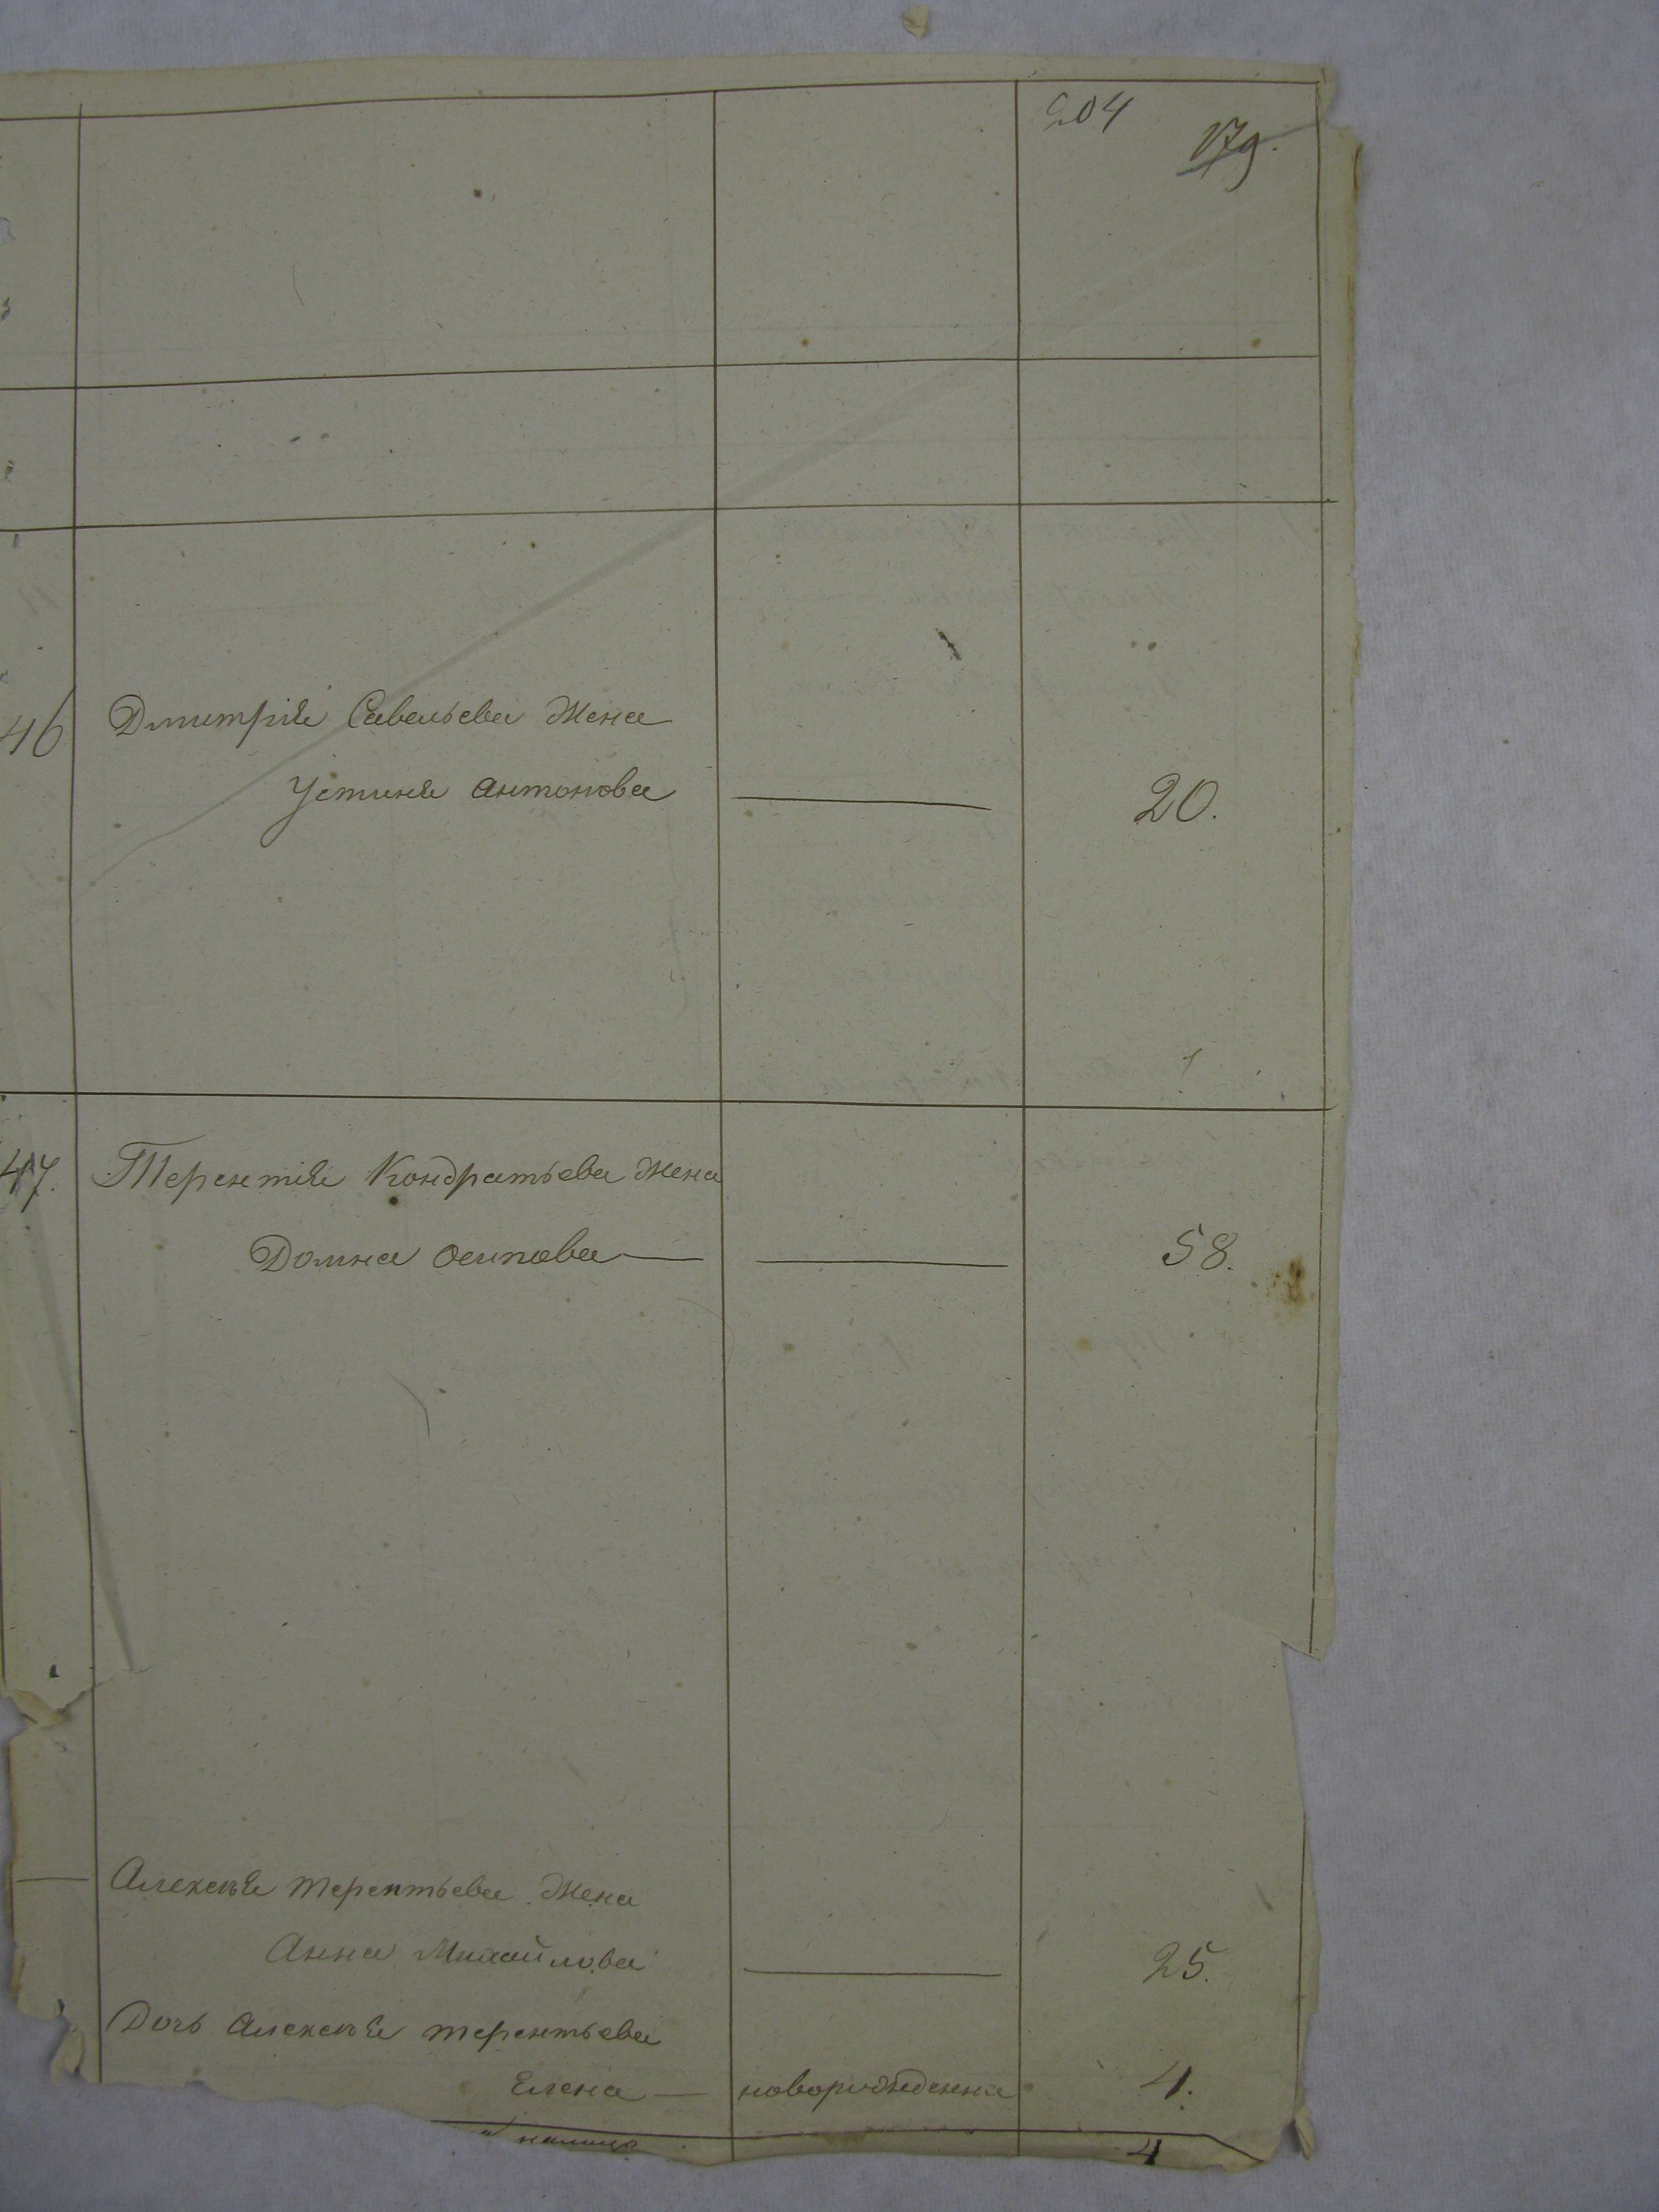 204
179.
46 Дмитрія Савельева жена
Устинья Антонова 20.
47. Терентія Кондратьева жена
Домна Осипова 58.
Алексѣя Терентьева жена
Анна Михайлова 25.
Дочь Алексѣя Терентьева
Елена новорожденна 4.
налицо 4